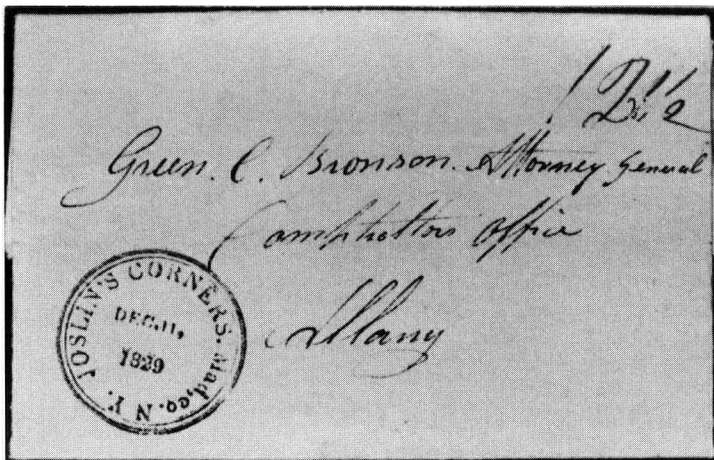 Green. C. Bronson. Attorney General
Comptrollers Office
Albany
JOSLIN'S CORNERS. Mad, co. N. Y.
DEC. 11,
1829